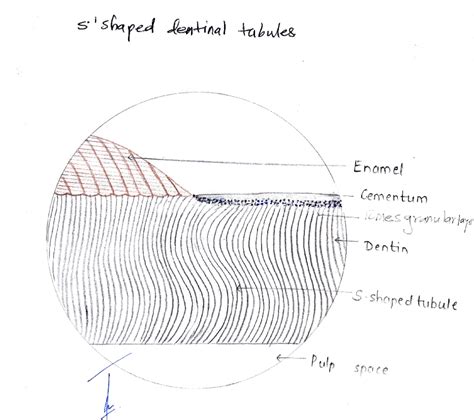 s' shaped dentinal tabules
Enamel
Cementum
Tomes granular layer
Dentin
S-shaped tubule
Pulp space